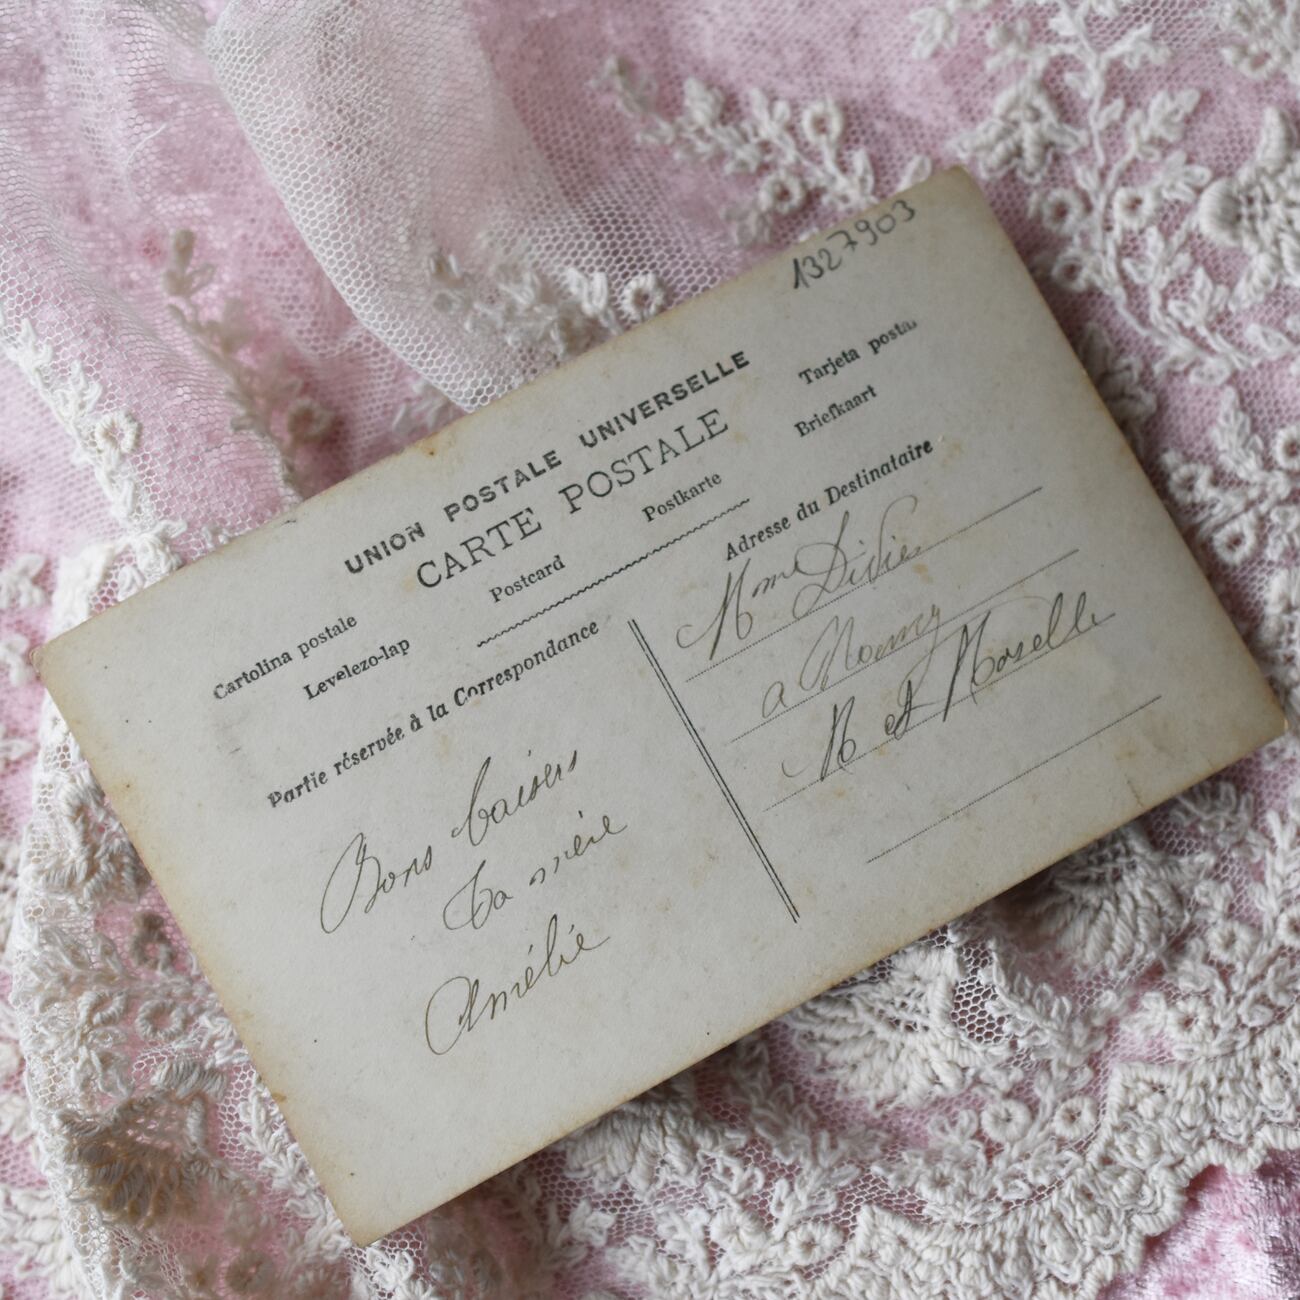 1327903
UNION POSTALE UNIVERSELLE
CARTE POSTALE
Tarjeta postal
Briefkaart
Postkarte
Postcard
Cartolina postale
Levelezo-lap
Partie réservée à la Correspondance
Bons baisers
Ta mère
Amélie
Adresse du Destinataire
Mme Didier
a
M et Moselle